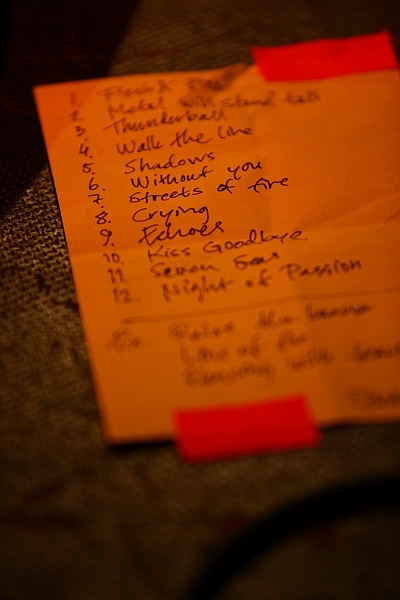 1. Flesh & Fire
2. Metal will stand tall
3. Thunderball
4. Walk the line
5. Shadows
6. Without you
7. Streets of fire
8. Crying
9. Echoes
10. Kiss Goodbye
11. Seven Seas
12. Night of Passion
Raise the banner
Law of
Dancing with